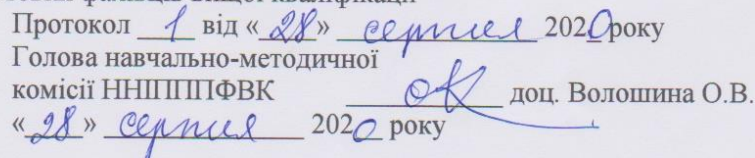 Протокол 1 від «28» серпня 2020 року
Голова навчально-методичної
комісії ННІПППФВК доц. Волошина О.В.
«28» серпня 2020 року